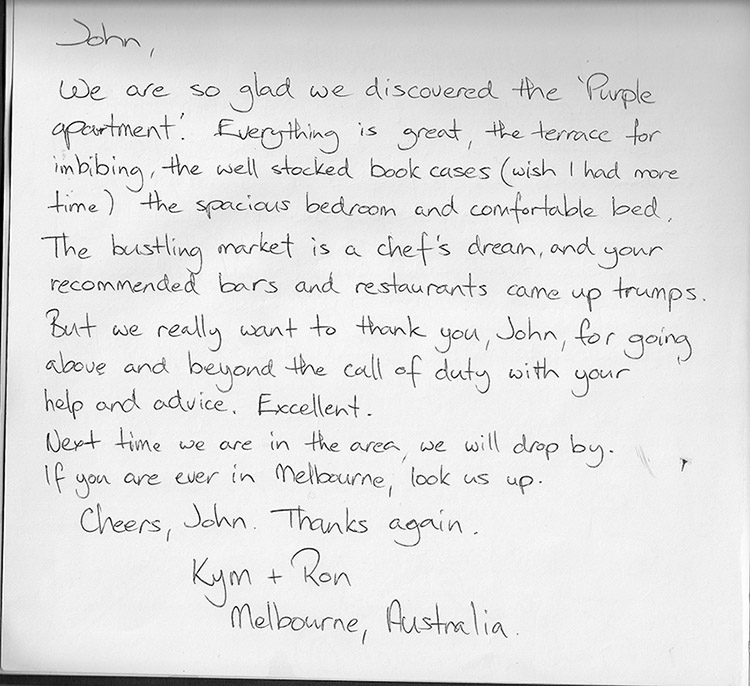 John,
We are so glad we discovered the 'Purple
apartment'. Everything is great, the terrace for
imbibing, the well stocked book cases (wish I had more
time) the spacious bedroom and comfortable bed.
The bustling market is a chef's dream, and your
recommended bars and restaurants came up trumps.
But we really want to thank you, John, for going
above and beyond the call of duty with your
help and advice. Excellent.
Next time we are in the area, we will drop by.
If you are ever in Melbourne, look us up.
Cheers, John. Thanks again.
Kym + Ron
Melbourne, Australia.